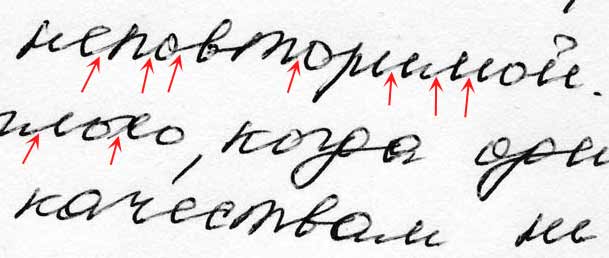 неповторимой.
плохо, когда оди
качествам не